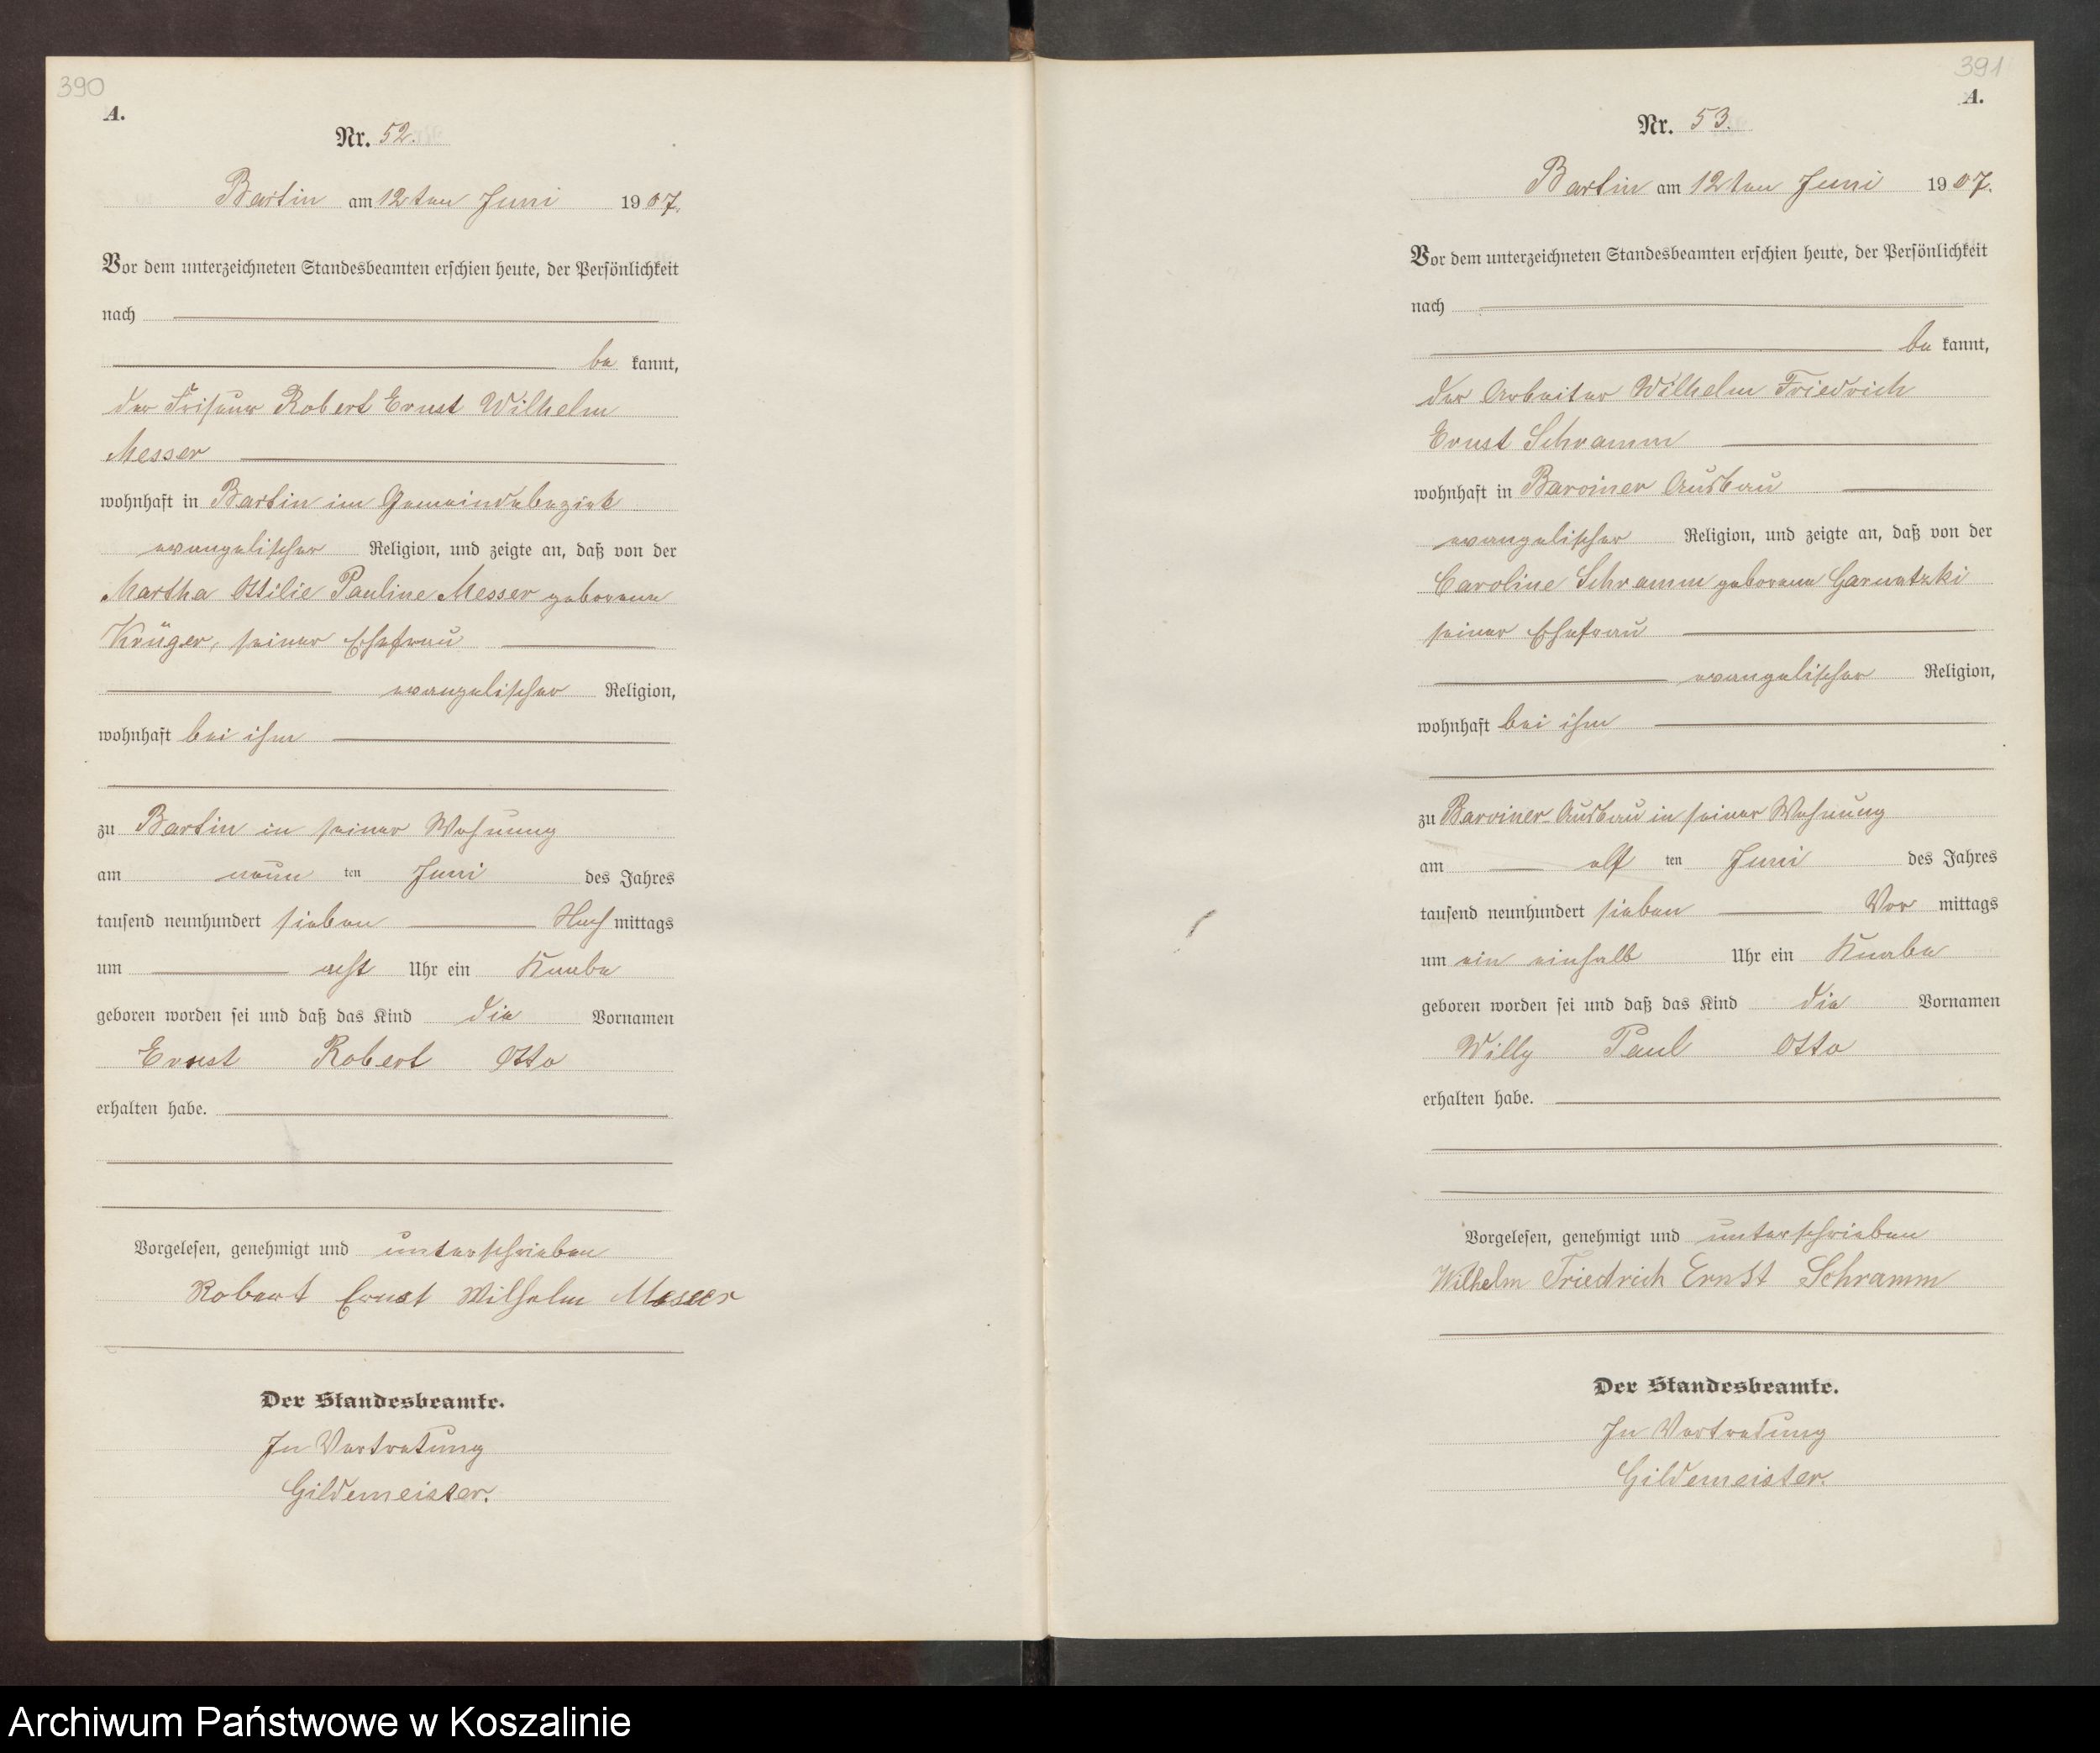 390
A.
Nr. 52.
Bartin am 12ten Juni 1907.
Vor dem unterzeichneten Standesbeamten erschien heute, der Persönlichkeit
nach
be kannt,
der Friseur Robert Ernst Wilhelm
Messer
wohnhaft in Bartin im Gemeindebezirk
evangelischer Religion, und zeigte an, daß von der
Martha Ottilie Pauline Messer geborene
Krüger, seiner Ehefrau
evangelischer Religion,
wohnhaft bei ihm
zu Bartin in seiner Wohnung
am neun ten Juni des Jahres
tausend neunhundert sieben Nach mittags
um acht Uhr ein Knabe
geboren worden sei und daß das Kind die Vornamen
Ernst Robert Otto
erhalten habe.
Vorgelesen, genehmigt und unterschrieben
Robert Ernst Wilhelm Messer
Der Standesbeamte.
In Vertretung
Gildemeister.
391
A.
Nr. 53.
Bartin am 12ten Juni 1907.
Vor dem unterzeichneten Standesbeamten erschien heute, der Persönlichkeit
nach
be kannt,
der Arbeiter Wilhelm Friedrich
Ernst Schramm
wohnhaft in Barviner Ausbau
evangelischer Religion, und zeigte an, daß von der
Caroline Schramm geborene Garnetzki
seiner Ehefrau
evangelischer Religion,
wohnhaft bei ihm
zu Barviner Ausbau in seiner Wohnung
am elf ten Juni des Jahres
tausend neunhundert sieben Vor mittags
um ein einhalb Uhr ein Knabe
geboren worden sei und daß das Kind die Vornamen
Willy Paul Otto
erhalten habe.
Vorgelesen, genehmigt und unterschrieben
Wilhelm Friedrich Ernst Schramm
Der Standesbeamte.
In Vertretung
Gildemeister.
Archiwum Państwowe w Koszalinie